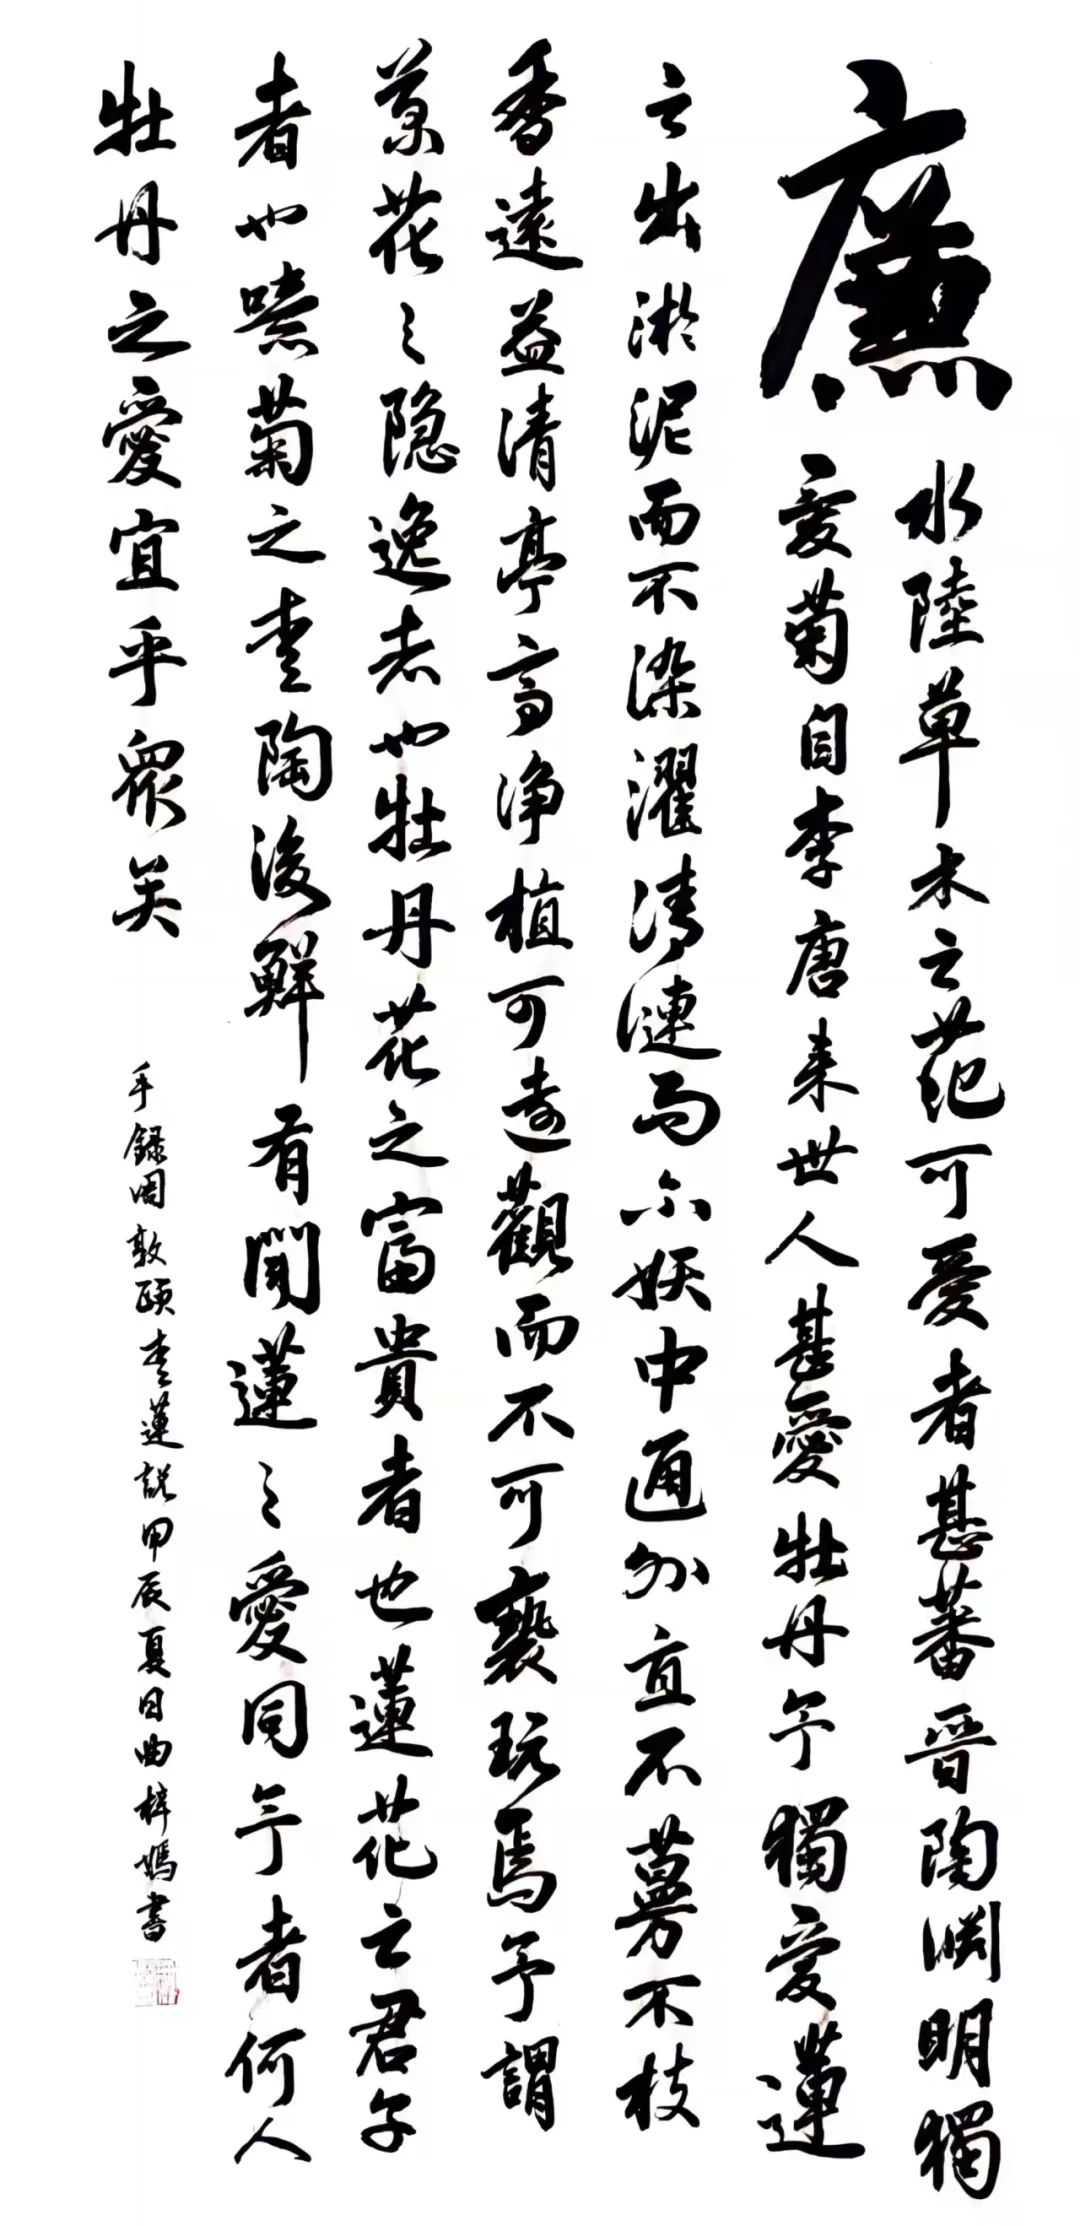 廉
水陸草木之花可愛者甚蕃晉陶渊明獨
愛菊自李唐来世人甚愛牡丹予獨愛蓮
之出淤泥而不染濯清漣而不妖中通外直不蔓不枝
香遠益清亭亭净植可遠觀而不可褻玩焉予謂
菊花之隐逸者也牡丹花之富貴者也蓮花之君子
者也噫菊之愛陶後鮮有聞蓮之愛同予者何人
牡丹之愛宜乎衆矣
手録周敦頤愛蓮説甲辰夏日曲梓嫣書